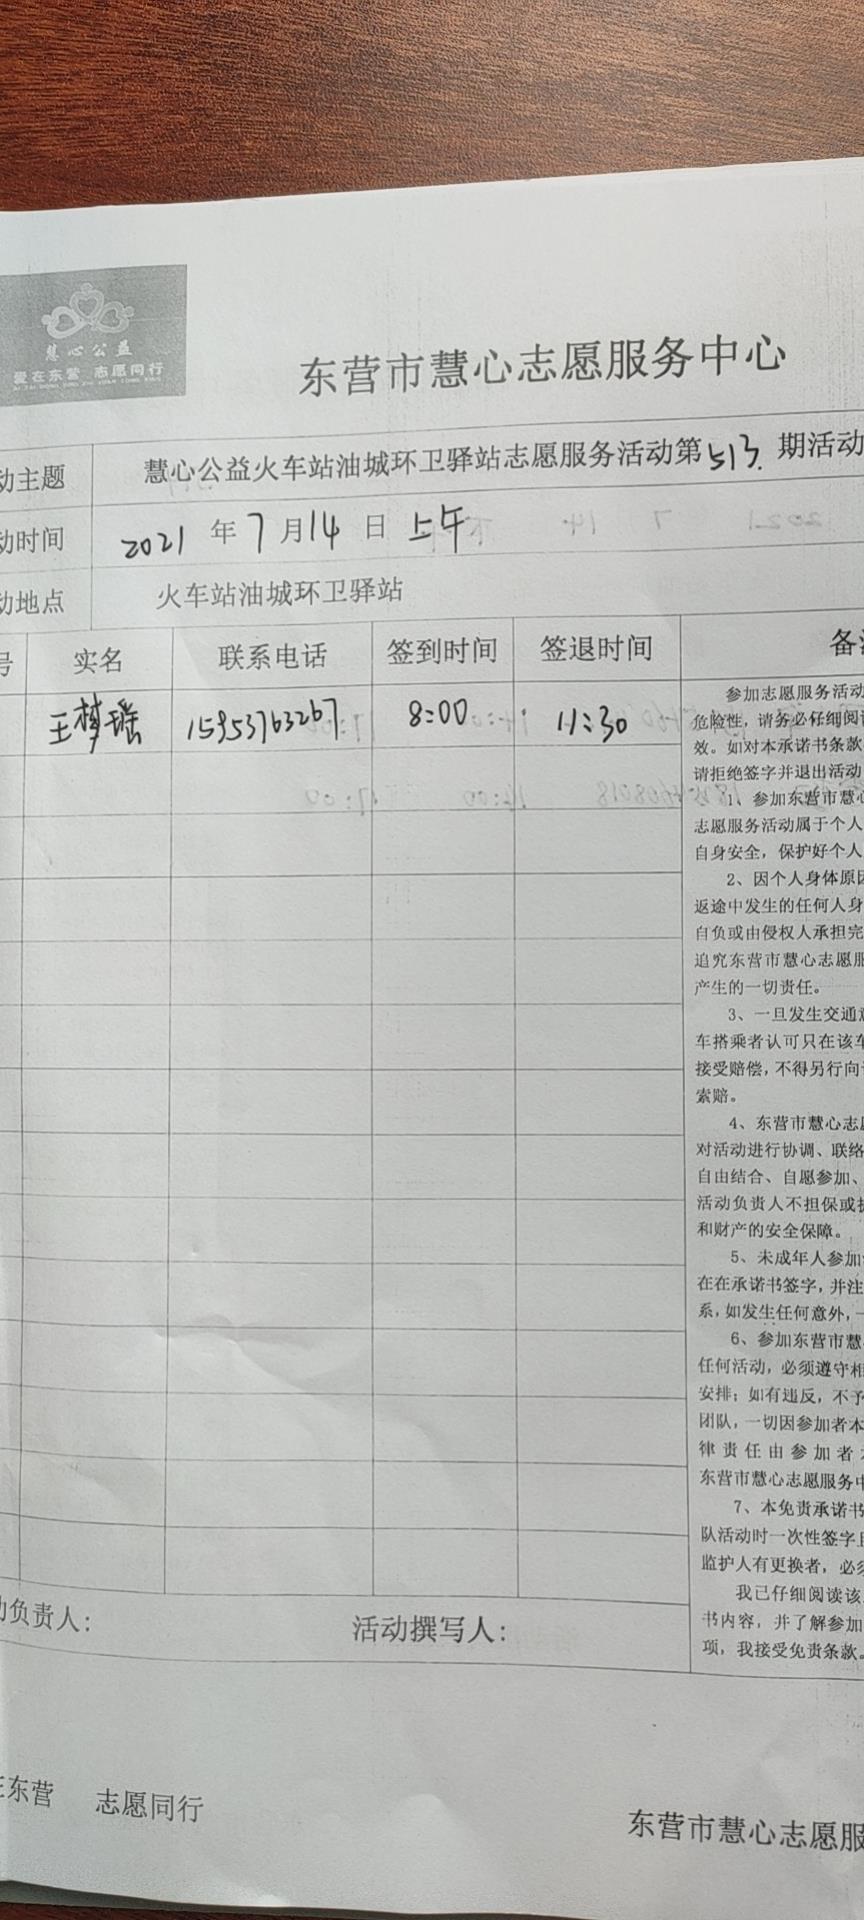 慧心公益
爱在东营 志愿同行
东营市慧心志愿服务中心
动主题 慧心公益火车站油城环卫驿站志愿服务活动第513.期活动
动时间 2021年7月14日上午
动地点 火车站油城环卫驿站
号 实名 联系电话 签到时间 签退时间 备注
王梦瑶 15953763267 8:00 11:30
参加志愿服务活动
危险性，请务必仔细阅读
效。如对本承诺书条款
请拒绝签字并退出活动
1、参加东营市慧心
志愿服务活动属于个人
自身安全，保护好个人
2、因个人身体原因
返途中发生的任何人身
自负或由侵权人承担完
追究东营市慧心志愿服
产生的一切责任。
3、一旦发生交通意
车搭乘者认可只在该车
接受赔偿，不得另行向
索赔。
4、东营市慧心志愿
对活动进行协调、联络
自由结合、自愿参加、
活动负责人不担保或
和财产的安全保障。
5、未成年人参加
在在承诺书签字，并注
系，如发生任何意外，一
6、参加东营市慧
任何活动，必须遵守相
安排；如有违反，不予
团队，一切因参加者本
律责任由参加者
东营市慧心志愿服务中
7、本免责承诺书
队活动时一次性签字
监护人有更换者，必须
我已仔细阅读该
书内容，并了解参加
项，我接受免责条款。
动负责人： 活动撰写人：
在东营 志愿同行
东营市慧心志愿服